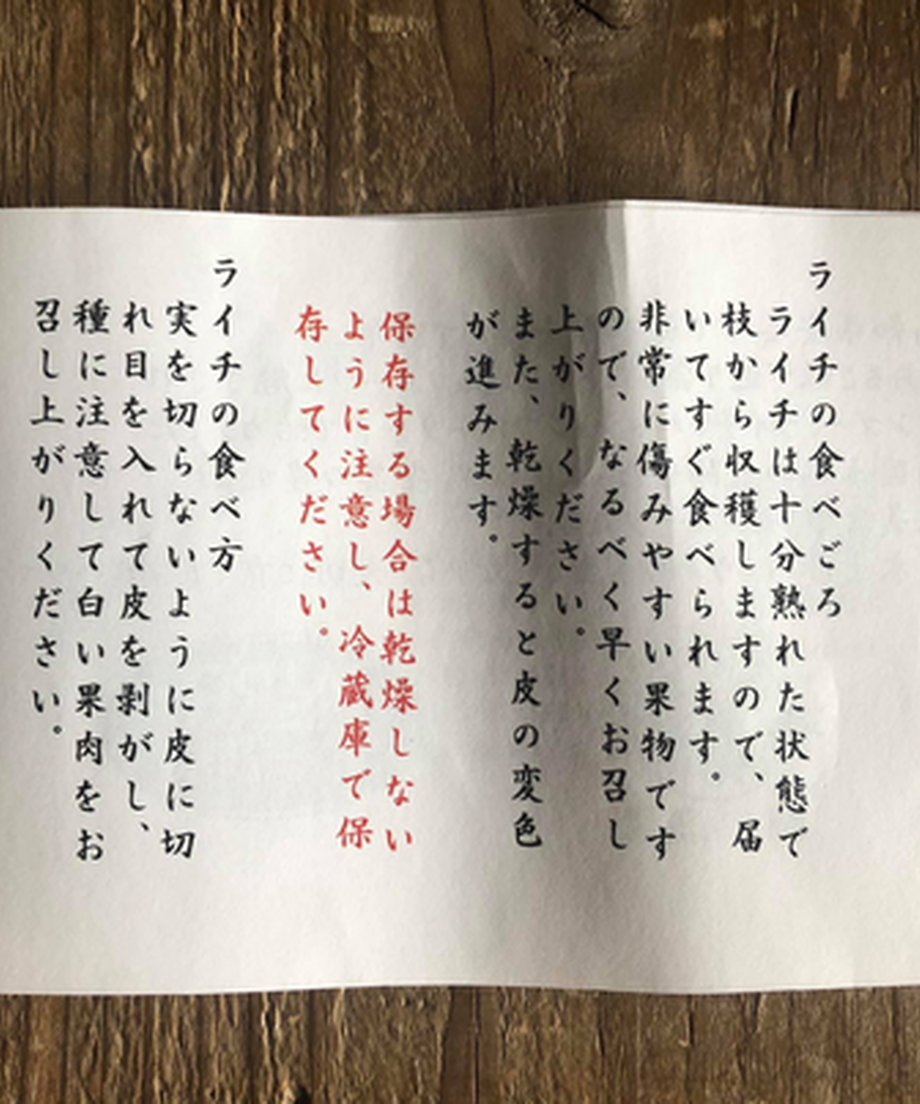 ライチの食べごろ
ライチは十分熟れた状態で
枝から収穫しますので、届
いてすぐ食べられます。
非常に傷みやすい果物です
ので、なるべく早くお召し
上がりください。
また、乾燥すると皮の変色
が進みます。
保存する場合は乾燥しない
ように注意し、冷蔵庫で保
存してください。
ライチの食べ方
実を切らないように皮に切
れ目を入れて皮を剥がし、
種に注意して白い果肉をお
召し上がりください。